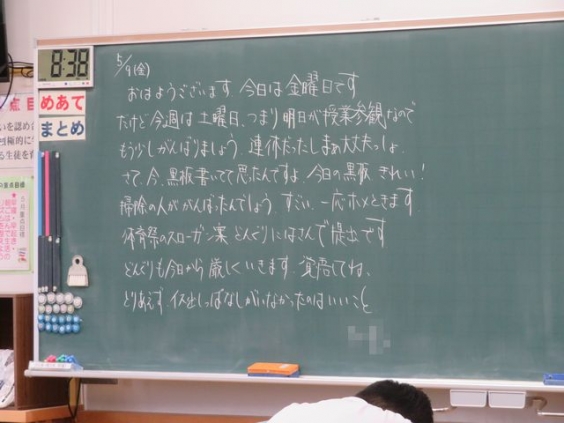 8:38
点目
めあて
まとめ
5/9(金)
おはようございます。今日は金曜日です。
だけど今週は土曜日、つまり明日が授業参観なので
もう少しがんばりましょう。連休だったしまぁ大丈夫っしょ。
さて、今、黒板書いてて思ったんですよ、今日の黒板きれい!
掃除の人ががんばったんでしょう。すごい。一応ホメときます。
体育祭のスローガン案 どんぐりにはさんで提出です
どんぐりも今日から厳しくいきます。覚悟してね。
とりあえず、イス出しっぱなしがいなかったのはいいこと